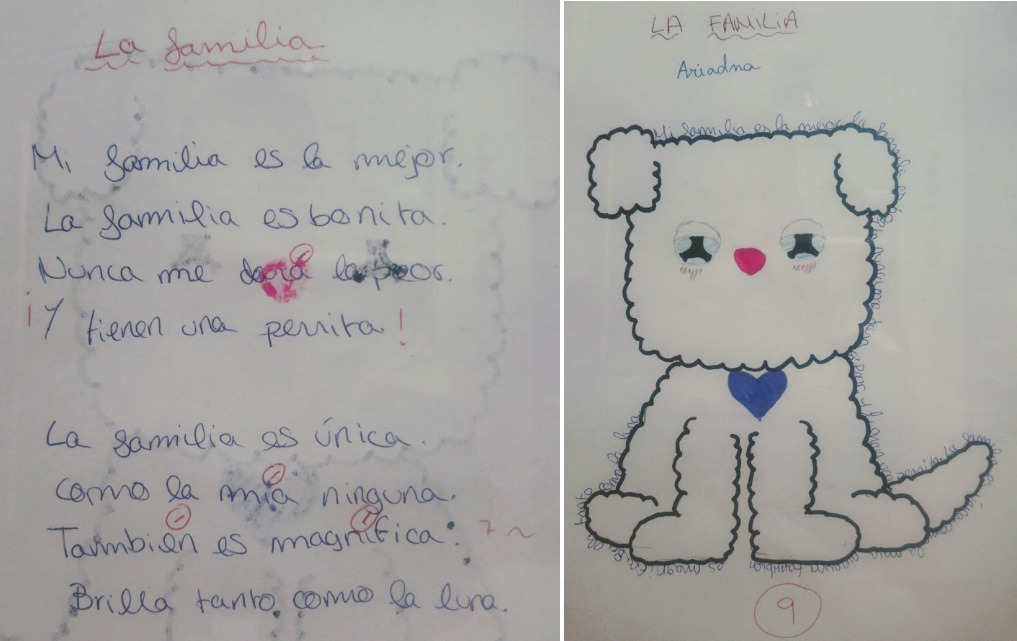 La familia
Mi familia es la mejor.
La familia es bonita.
Nunca me dará lo peor.
¡Y tienen una perrita!
La familia es única.
como la mía ninguna.
También es magnífica.
7~
Brilla tanto como la luna.
LA FAMILIA
Ariadna
Mi familia es la mejor la familia es bonita
9